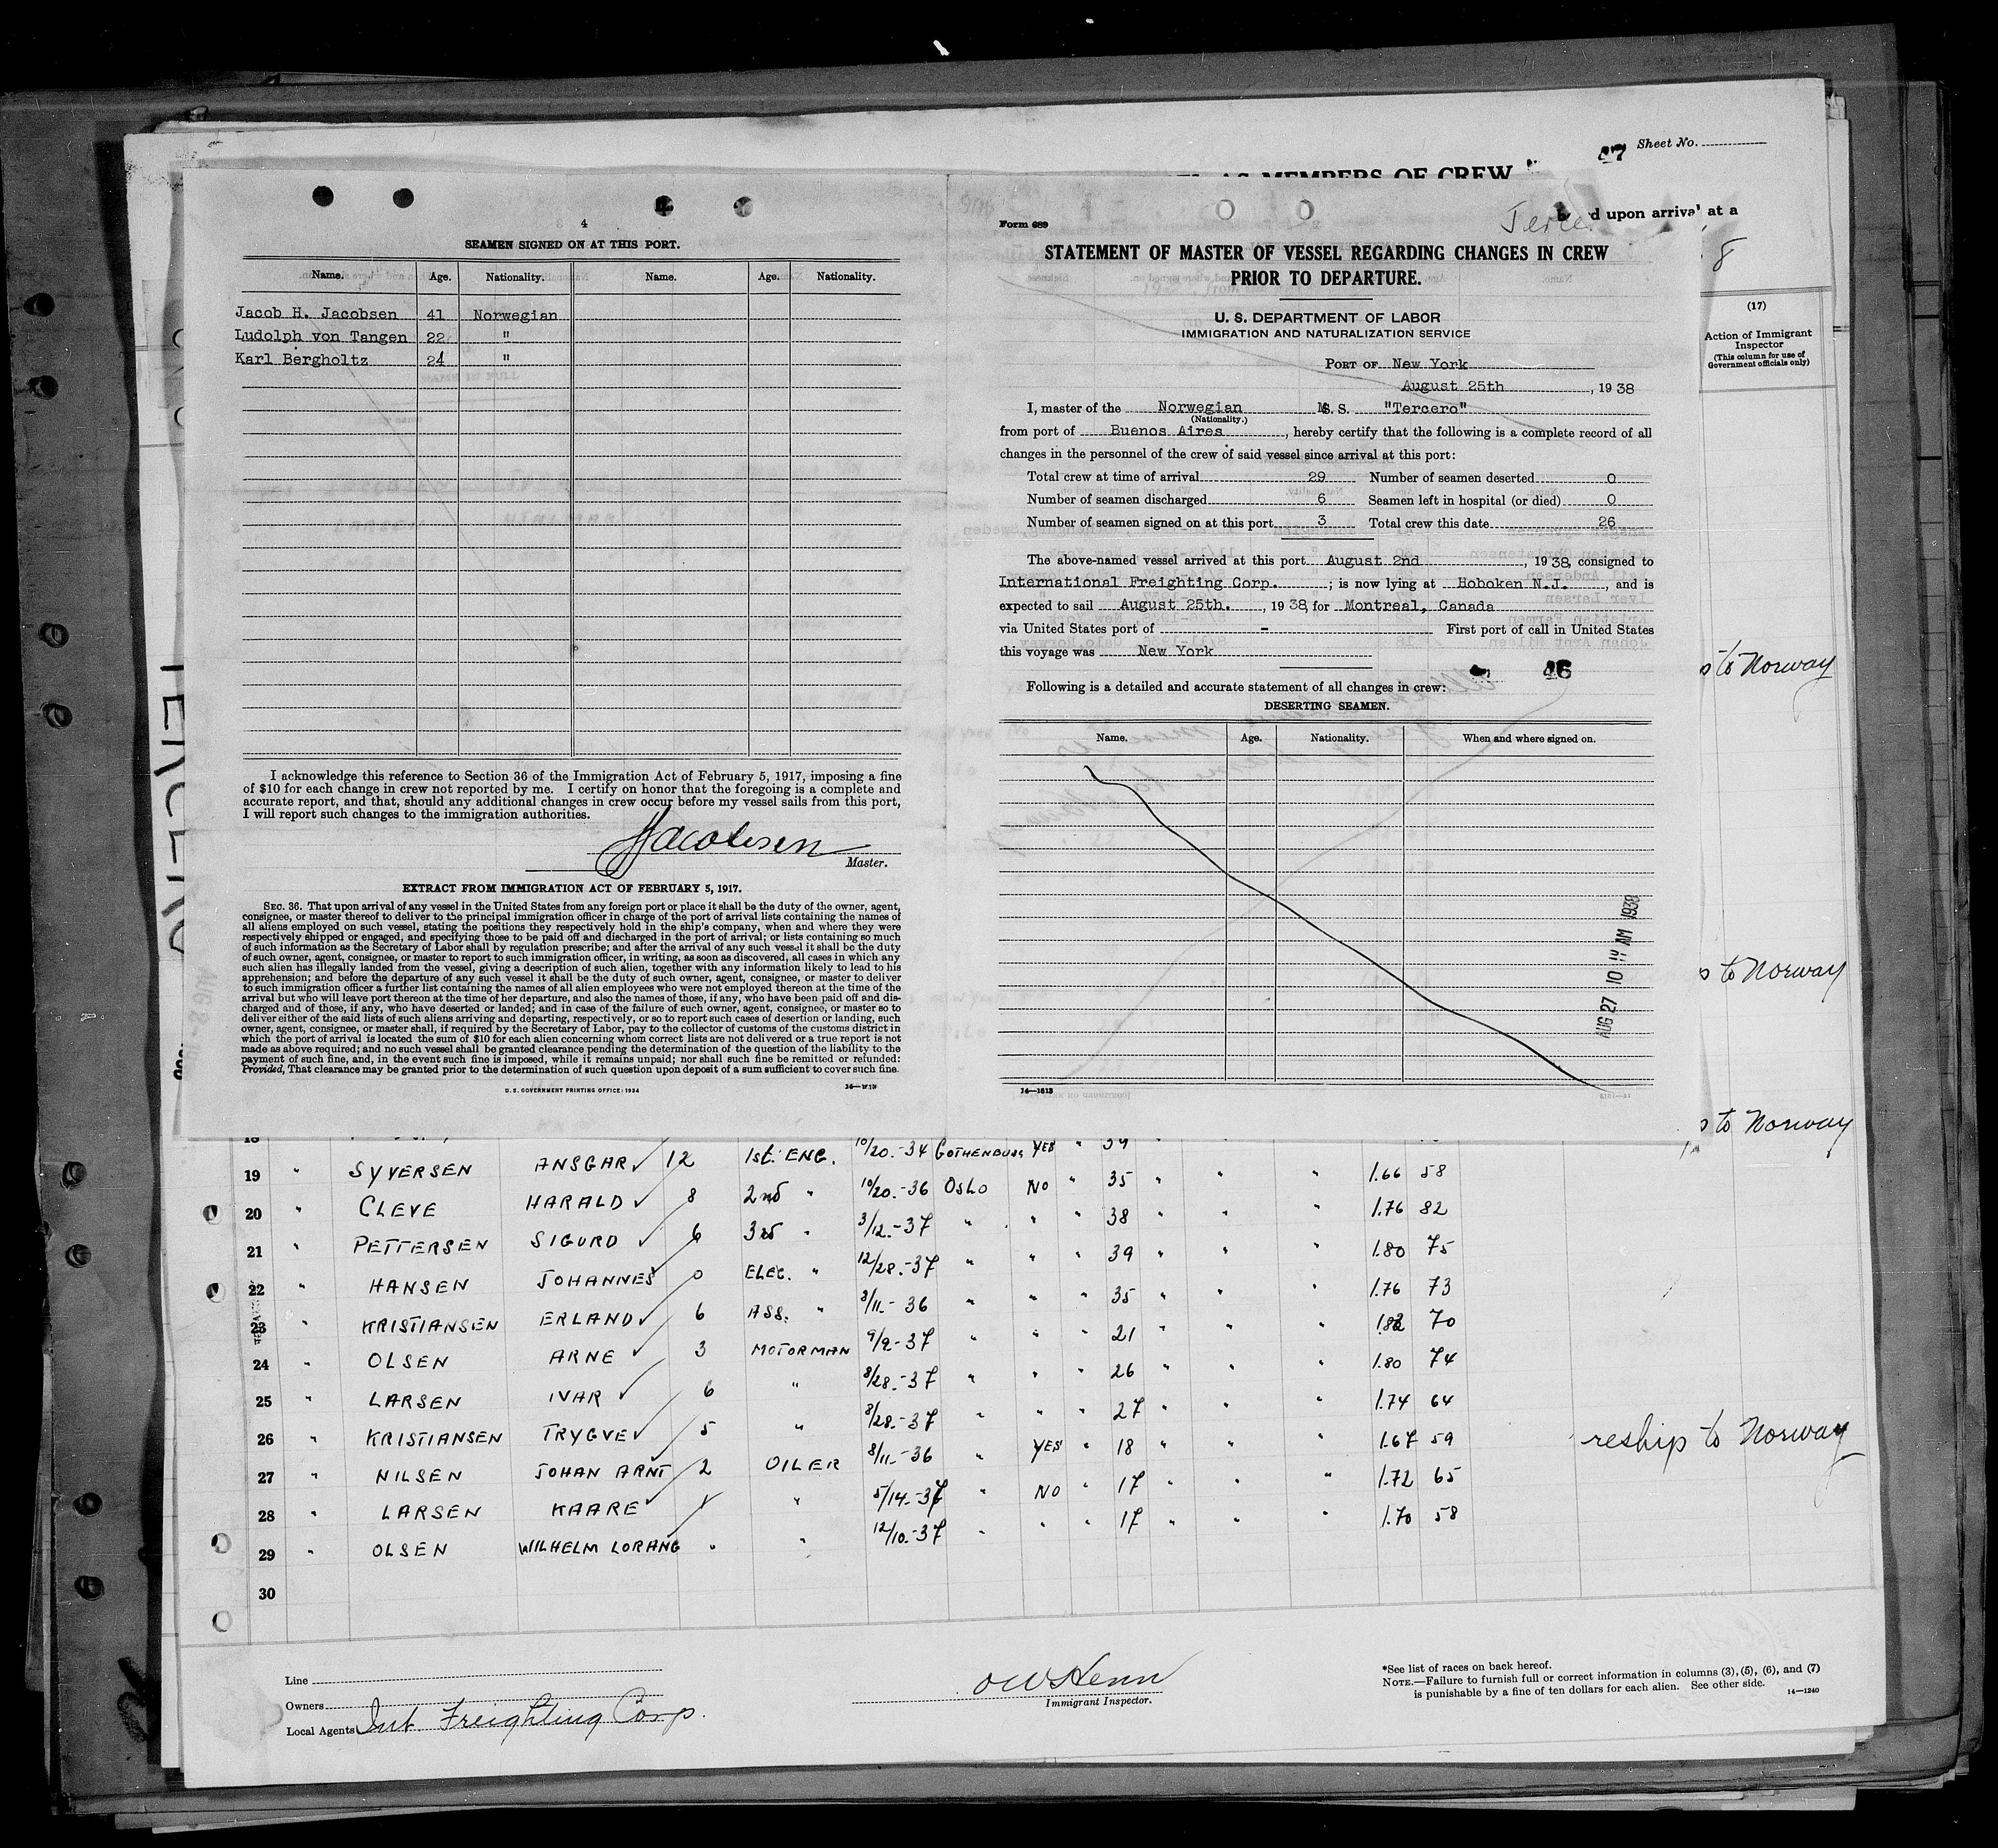 Sheet No.
MEMBERS OF CREW
upon arrival at a
8
(17)
Action of Immigrant
Inspector
(This column for use of
Government officials only)
to Norway
to Norway
to Norway
4
SEAMEN SIGNED ON AT THIS PORT.
Name. Age. Nationality. Name. Age. Nationality.
Jacob H. Jacobsen 41 Norwegian
Ludolph von Tangen 22 "
Karl Bergholtz 24 "
I acknowledge this reference to Section 36 of the Immigration Act of February 5, 1917, imposing a fine
of $10 for each change in crew not reported by me. I certify on honor that the foregoing is a complete and
accurate report, and that, should any additional changes in crew occur before my vessel sails from this port,
I will report such changes to the immigration authorities.
Jacobsen
Master.
EXTRACT FROM IMMIGRATION ACT OF FEBRUARY 5, 1917.
SEC. 36. That upon arrival of any vessel in the United States from any foreign port or place it shall be the duty of the owner, agent,
consignee, or master thereof to deliver to the principal immigration officer in charge of the port of arrival lists containing the names of
all aliens employed on such vessel, stating the positions they respectively hold in the ship's company, when and where they were
respectively shipped or engaged, and specifying those to be paid off and discharged in the port of arrival; or lists containing so much
of such information as the Secretary of Labor shall by regulation prescribe; and after the arrival of any such vessel it shall be the duty
of such owner, agent, consignee, or master to report to such immigration officer, in writing, as soon as discovered, all cases in which any
such alien has illegally landed from the vessel, giving a description of such alien, together with any information likely to lead to his
apprehension; and before the departure of any such vessel it shall be the duty of such owner, agent, consignee, or master to deliver
to such immigration officer a further list containing the names of all alien employees who were not employed thereon at the time of the
arrival but who will leave port thereon at the time of her departure, and also the names of those, if any, who have been paid off and dis-
charged and of those, if any, who have deserted or landed; and in case of the failure of such owner, agent, consignee, or master so to
deliver either of the said lists of such aliens arriving and departing, respectively, or so to report such cases of desertion or landing, such
owner, agent, consignee, or master shall, if required by the Secretary of Labor, pay to the collector of customs of the customs district in
which the port of arrival is located the sum of $10 for each alien concerning whom correct lists are not delivered or a true report is not
made as above required; and no such vessel shall be granted clearance pending the determination of the question of the liability to the
payment of such fine, and, in the event such fine is imposed, while it remains unpaid; nor shall such fine be remitted or refunded:
Provided, That clearance may be granted prior to the determination of such question upon deposit of a sum sufficient to cover such fine.
U. S. GOVERNMENT PRINTING OFFICE: 1934
Form 689
STATEMENT OF MASTER OF VESSEL REGARDING CHANGES IN CREW
PRIOR TO DEPARTURE.
U. S. DEPARTMENT OF LABOR
IMMIGRATION AND NATURALIZATION SERVICE
PORT OF New York
August 25th, 1938
I, master of the Norwegian M.S. "Tercero"
(Nationality.)
from port of Buenos Aires, hereby certify that the following is a complete record of all
changes in the personnel of the crew of said vessel since arrival at this port:
Total crew at time of arrival 29 Number of seamen deserted 0
Number of seamen discharged 6 Seamen left in hospital (or died) 0
Number of seamen signed on at this port 3 Total crew this date 26
The above-named vessel arrived at this port August 2nd, 1938, consigned to
International Freighting Corp.; is now lying at Hoboken N.J., and is
expected to sail August 25th., 1938, for Montreal, Canada
via United States port of - First port of call in United States
this voyage was New York
46
Following is a detailed and accurate statement of all changes in crew:
DESERTING SEAMEN.
Name. Age. Nationality. When and where signed on.
AUG 27 10 14 AM 1938
14—1813
18 1st. ENG. 10/20.-34 GOTHENBURG YES " 39
19 " SYVERSEN ANSGAR 12 2nd " 10/20.-36 OSLO NO " 35 " " " 1.66 58
20 " CLEVE HARALD 8 3rd " 3/12.-37 " " " 38 " " " 1.76 82
21 " PETTERSEN SIGURD 6 ELEC. " 12/28.-37 " " " 39 " " " 1.80 75
22 " HANSEN JOHANNES 0 ASS. " 8/11.-36 " " " 35 " " " 1.76 73
23 " KRISTIANSEN ERLAND 6 MOTORMAN 9/9-37 " " 21 " " " 1.82 70
24 " OLSEN ARNE 3 " 8/28.-37 " " " 26 " " " 1.80 74
25 " LARSEN IVAR 6 " 8/28.-37 " " " 27 " " " 1.74 64
26 " KRISTIANSEN TRYGVE 5 OILER 8/11.-36 " YES " 18 " " " 1.67 59 reship to Norway
27 " NILSEN JOHAN ARNT 2 " 5/14.-37 " NO " 17 " " " 1.72 65
28 " LARSEN KAARE 1 " 12/10.-37 " " " 17 " " " 1.70 58
29 " OLSEN WILHELM LORANG "
30
Line
Owners
Local Agents Int. Freighting Corp.
Immigrant Inspector.
*See list of races on back hereof.
NOTE.—Failure to furnish full or correct information in columns (3), (5), (6), and (7)
is punishable by a fine of ten dollars for each alien. See other side. 14—1240